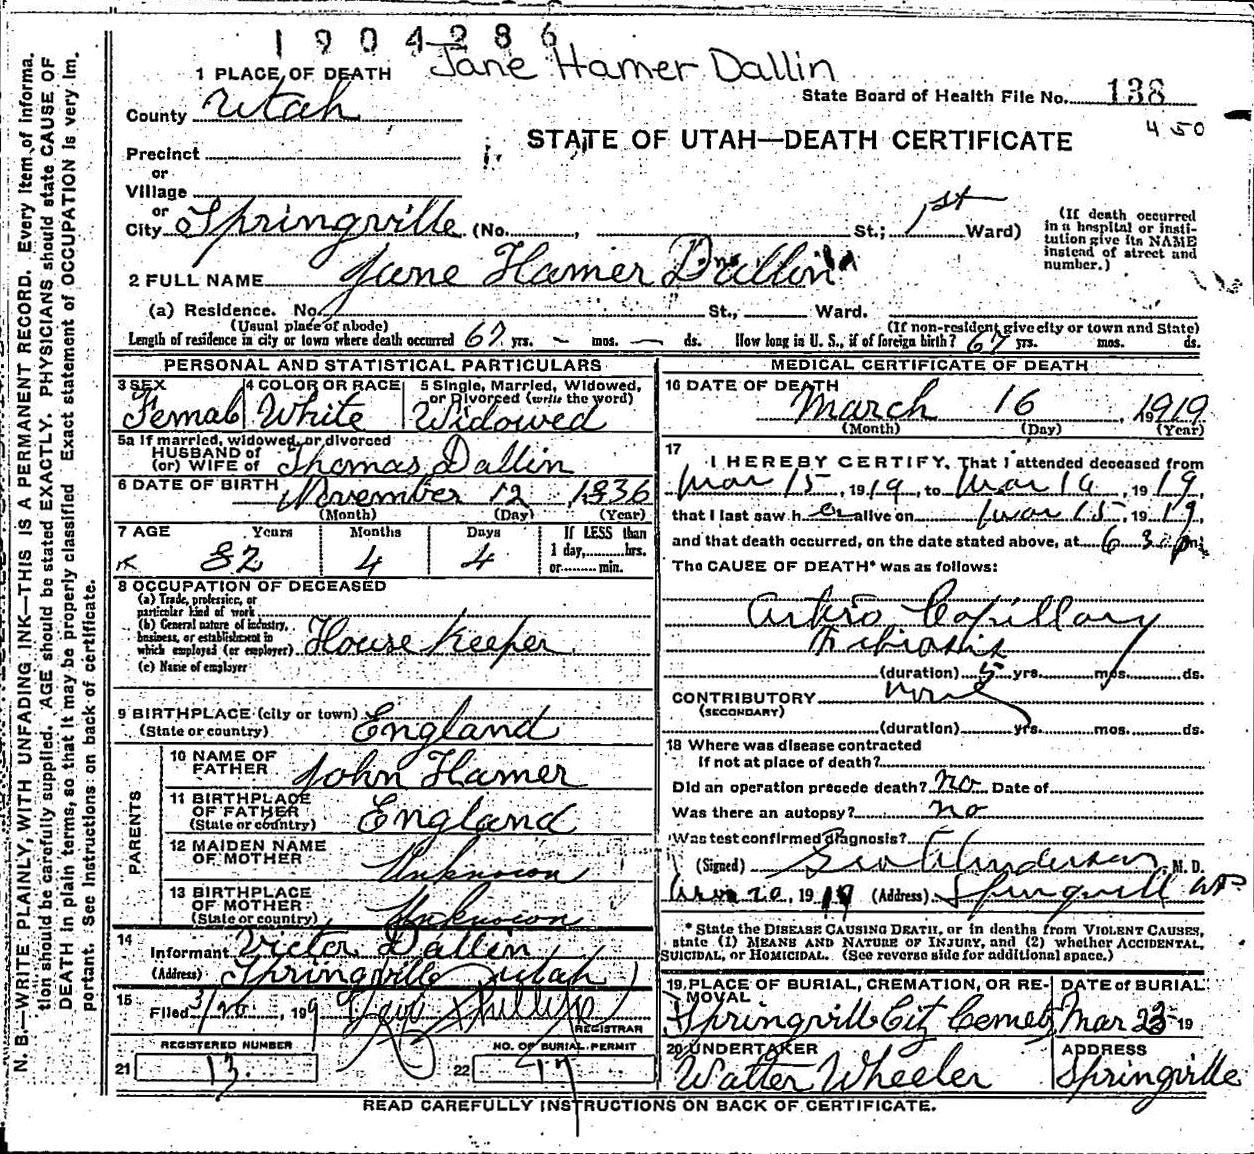 1904286
Jane Hamer Dallin
1 PLACE OF DEATH
State Board of Health File No. 138
County Utah
450
STATE OF UTAH—DEATH CERTIFICATE
Precinct
or
Village
or
City Springville (No. , St.; 1st Ward)
(If death occurred in a hospital or institution give its NAME instead of street and number.)
2 FULL NAME Jane Hamer Dallin
(a) Residence. No. St., Ward.
(Usual place of abode) (If non-resident give city or town and State)
Length of residence in city or town where death occurred 67 yrs. – mos. – ds. How long in U. S., if of foreign birth? 67 yrs. mos. ds.
PERSONAL AND STATISTICAL PARTICULARS
3 SEX
Femal
4 COLOR OR RACE
White
5 Single, Married, Widowed, or Divorced (write the word)
Widowed
5a If married, widowed, or divorced
HUSBAND of
(or) WIFE of Thomas Dallin
6 DATE OF BIRTH November 12 1836
(Month) (Day) (Year)
7 AGE Years Months Days If LESS than
82 4 4 1 day, hrs.
or min.
8 OCCUPATION OF DECEASED
(a) Trade, profession, or
particular kind of work
(b) General nature of industry,
business, or establishment in
which employed (or employer) House Keeper
(c) Name of employer
9 BIRTHPLACE (city or town)
(State or country) England
PARENTS
10 NAME OF
FATHER John Hamer
11 BIRTHPLACE
OF FATHER
(State or country) England
12 MAIDEN NAME
OF MOTHER Unknown
13 BIRTHPLACE
OF MOTHER
(State or country) Unknown
14
Informant Victor Dallin
(Address) Springville Utah
15
Filed 3/20, 1919
REGISTRAR
REGISTERED NUMBER
21 13
NO. OF BURIAL PERMIT
22 17
MEDICAL CERTIFICATE OF DEATH
16 DATE OF DEATH
March 16, 1919
(Month) (Day) (Year)
17
I HEREBY CERTIFY, That I attended deceased from
Mar 15, 1919, to Mar 16, 1919,
that I last saw her alive on Mar 15, 1919,
and that death occurred, on the date stated above, at 6 30 pm.
The CAUSE OF DEATH* was as follows:
Artrio Capillary
Fibrosis
(duration) 5 yrs. mos. ds.
CONTRIBUTORY none
(SECONDARY)
(duration) yrs. mos. ds.
18 Where was disease contracted
If not at place of death?
Did an operation precede death? no Date of
Was there an autopsy? no
Was test confirmed diagnosis?
(Signed) Geo Anderson, M. D.
Mar 20, 1919 (Address) Springvill
* State the DISEASE CAUSING DEATH, or in deaths from VIOLENT CAUSES,
state (1) MEANS AND NATURE OF INJURY, and (2) whether ACCIDENTAL,
SUICIDAL, or HOMICIDAL. (See reverse side for additional space.)
19 PLACE OF BURIAL, CREMATION, OR REMOVAL
Springvill City Cemet
DATE OF BURIAL
Mar 23 19
20 UNDERTAKER
Walter Wheeler
ADDRESS
Springville
READ CAREFULLY INSTRUCTIONS ON BACK OF CERTIFICATE.
N. B.—WRITE PLAINLY, WITH UNFADING INK—THIS IS A PERMANENT RECORD. Every item of informa-
tion should be carefully supplied. AGE should be stated EXACTLY. PHYSICIANS should state CAUSE OF
DEATH in plain terms, so that it may be properly classified. Exact statement of OCCUPATION is very im-
portant. See instructions on back of certificate.